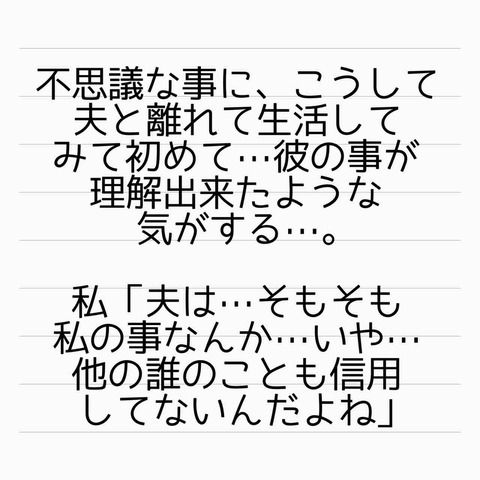 不思議な事に、こうして
夫と離れて生活して
みて初めて…彼の事が
理解出来たような
気がする…。
私「夫は…そもそも
私の事なんか…いや…
他の誰のことも信用
してないんだよね」